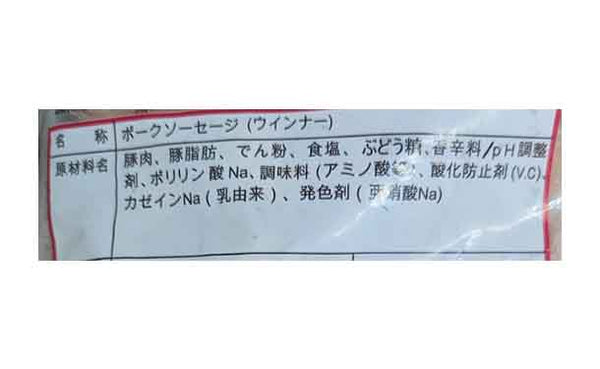 名 称 ポークソーセージ (ウインナー)
原材料名 豚肉、豚脂肪、でん粉、食塩、ぶどう糖、香辛料/pH調整
剤、ポリリン酸Na、調味料(アミノ酸等)、酸化防止剤(V.C)、
カゼインNa(乳由来)、発色剤(亜硝酸Na)